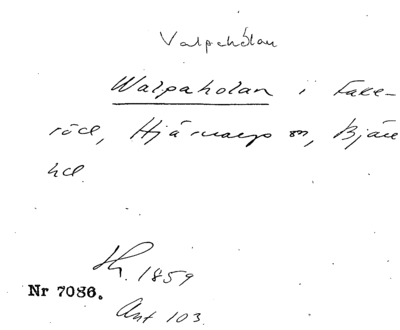 Valpehålan
Walpaholan i Fake-
röd, Hjärnarps sn, Bjäre
hd
Hr. 1859
Nr 7086.
Ant 103.